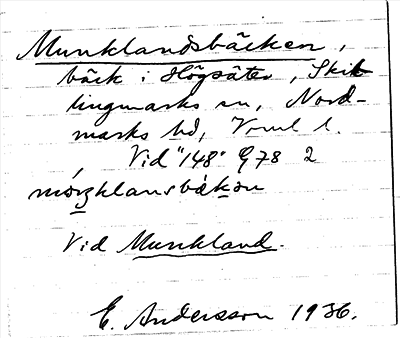 Munklandsbäcken,
bäck i Högsäter, Skil-
lingmarks sn, Nord-
marks hd, Vrml l.
Vid "148" G78 2
Vid Munkland.
E. Andersson 1936.